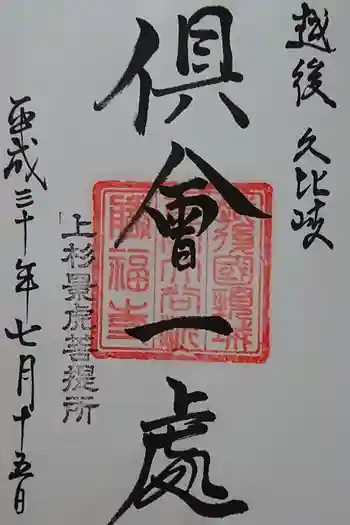 越後 久比岐
倶會一處
上杉景虎菩提所
平成三十年七月十五日